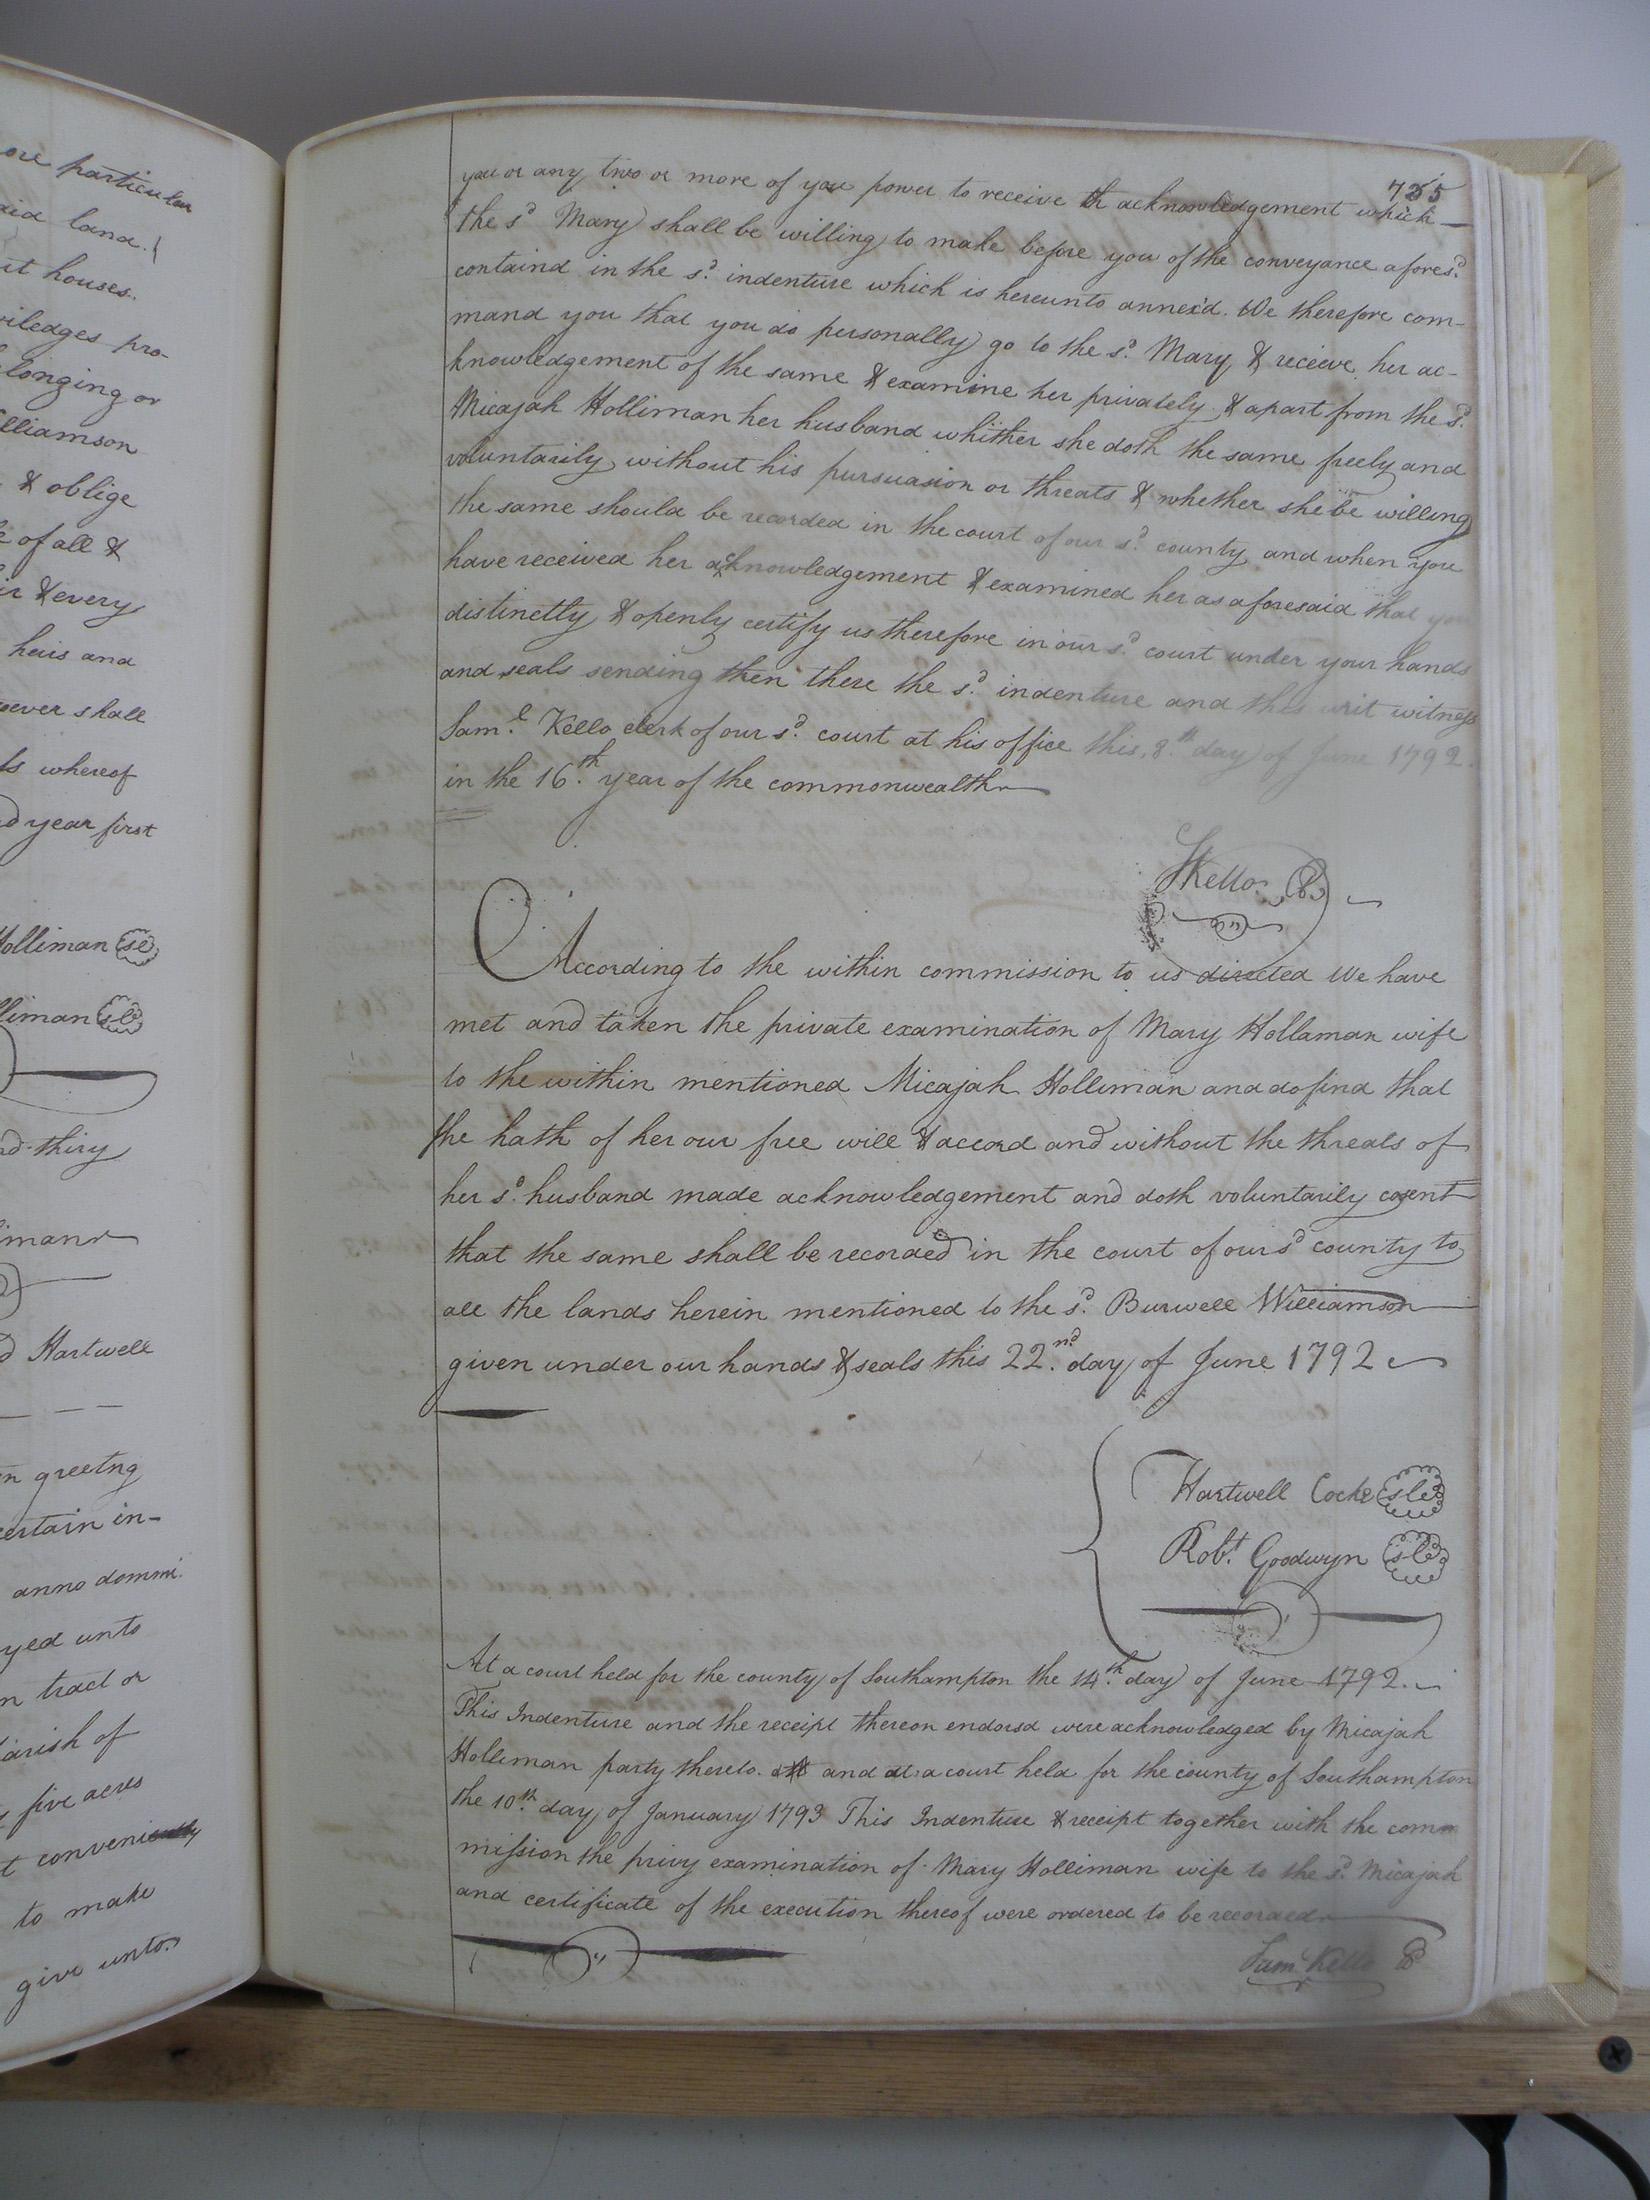 ore particular
aid land.
it houses.
viledges pro-
longing or
lliamson
& oblige
e of all &
ir & every
heirs and
soever shall
ts whereof
d year first
Holliman se
lliman sle
nd thiry
imann
d Hartwell
n greetng
certain in-
anno dommi.
yed unto
n tract or
parish of
five acres
t conveniently
to make
give unto
735
you or any two or more of you power to receive th acknowledgement which
the sd Mary shall be willing to make before you of the conveyance aforesd
containd in the sd indenture which is hereunto annex'd. We therefore com-
mand you that you do personally go to the sd Mary & receive her ac-
knowledgement of the same & examine her privately & apart from the sd
Micajah Holliman her husband whither she doth the same freely and
voluntarily without his pursuasion or threats & whether she be willing
the same should be recorded in the court of our sd county and when you
have received her acknowledgement & examined her as aforesaid that you
distinctly & openly certify us therefore in our sd court under your hands
and seals sending then there the sd indenture and this writ witness
Saml Kello clerk of our sd court at his office this 8th day of June 1792.
in the 16th year of the commonwealth
SKello
According to the within commission to us directed We have
met and taken the private examination of Mary Hollaman wife
to the within mentioned Micajah Holliman and do find that
she hath of her our free will & accord and without the threats of
her sd husband made acknowledgement and doth voluntarily cosent
that the same shall be recorded in the court of our sd county to
all the lands herein mentioned to the sd Burwell Williamson
given under our hands & seals this 22nd day of June 1792
Hartwell Cocke sle
Robt Goodwyn sle
At a court held for the county of Southampton the 14th day of June 1792.
This Indenture and the receipt thereon endorsd were acknowledged by Micajah
Holliman party thereto. and at a court held for the county of Southampton
the 10th day of January 1793 This Indenture & receipt together with the com
mission the privy examination of Mary Holliman wife to the sd Micajah
and certificate of the execution thereof were ordered to be recorded
Saml Kello